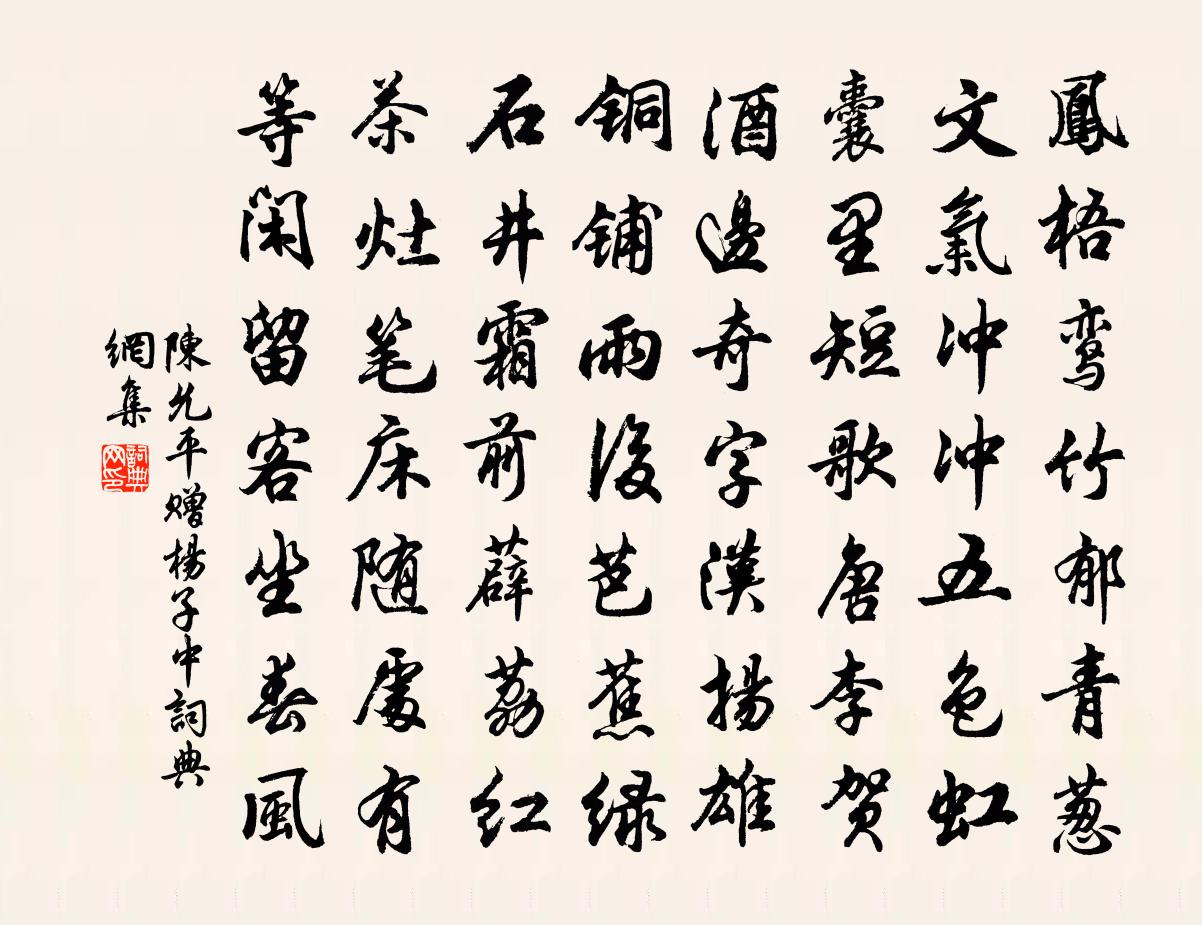 鳳梧鸾竹郁青葱
文氣冲冲五色虹
囊里短歌唐李贺
酒邊奇字漢揚雄
铜铺雨後芭蕉绿
石井霜前薜荔红
茶灶笔床随處有
等闲留客坐春風
陳允平赠楊子中詞典
網集
詞典
网印